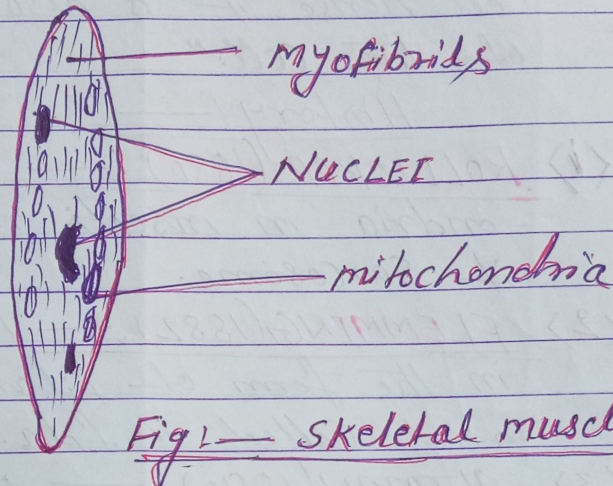 myofibrids
NUCLEI
mitochondria
Fig 1— Skeletal muscl